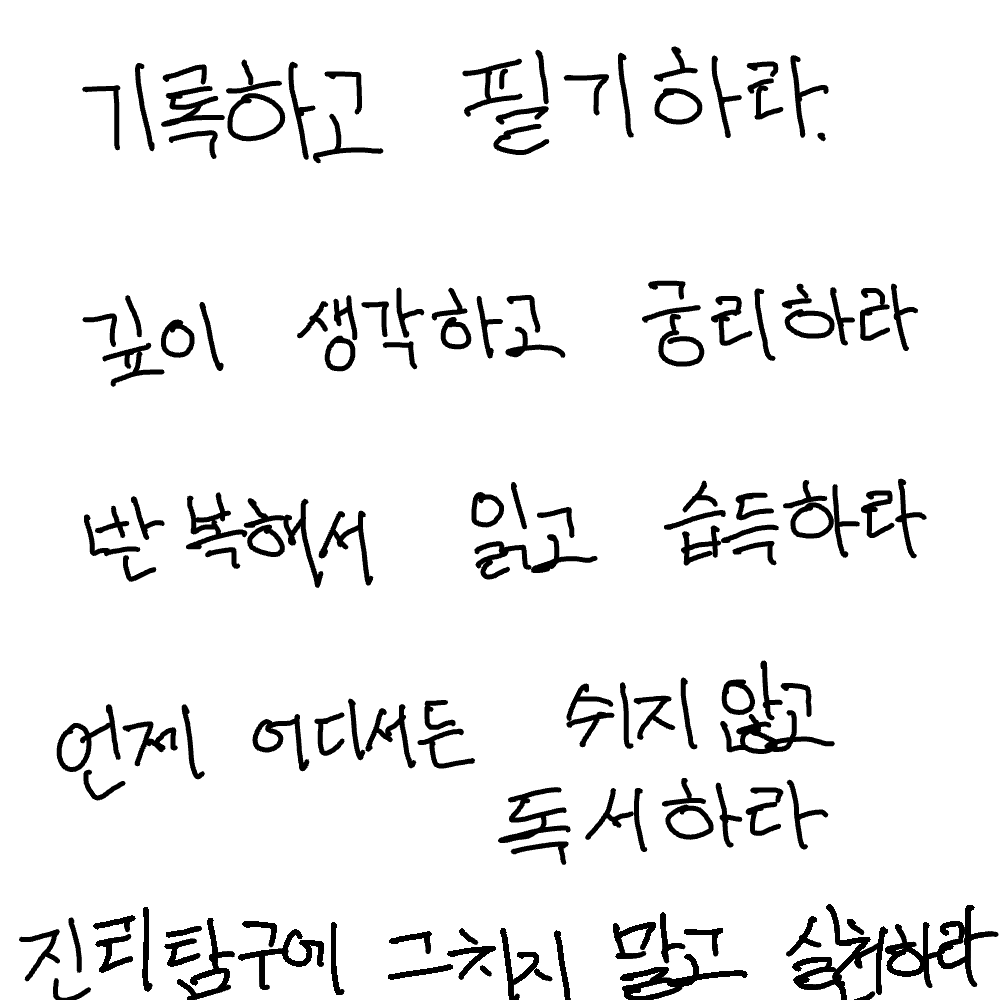 기록하고 필기하라.
깊이 생각하고 궁리하라
반복해서 읽고 습득하라
언제 어디서든 쉬지 않고
독서하라
진리탐구에 그치지 말고 실천하라